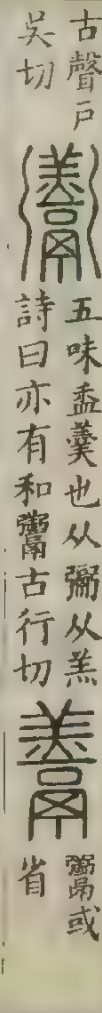 古聲戶
吳切
𩱧
五味盉羹也从䰜从羔
詩曰亦有和𩱧古行切
𩱋
𩱧或
省